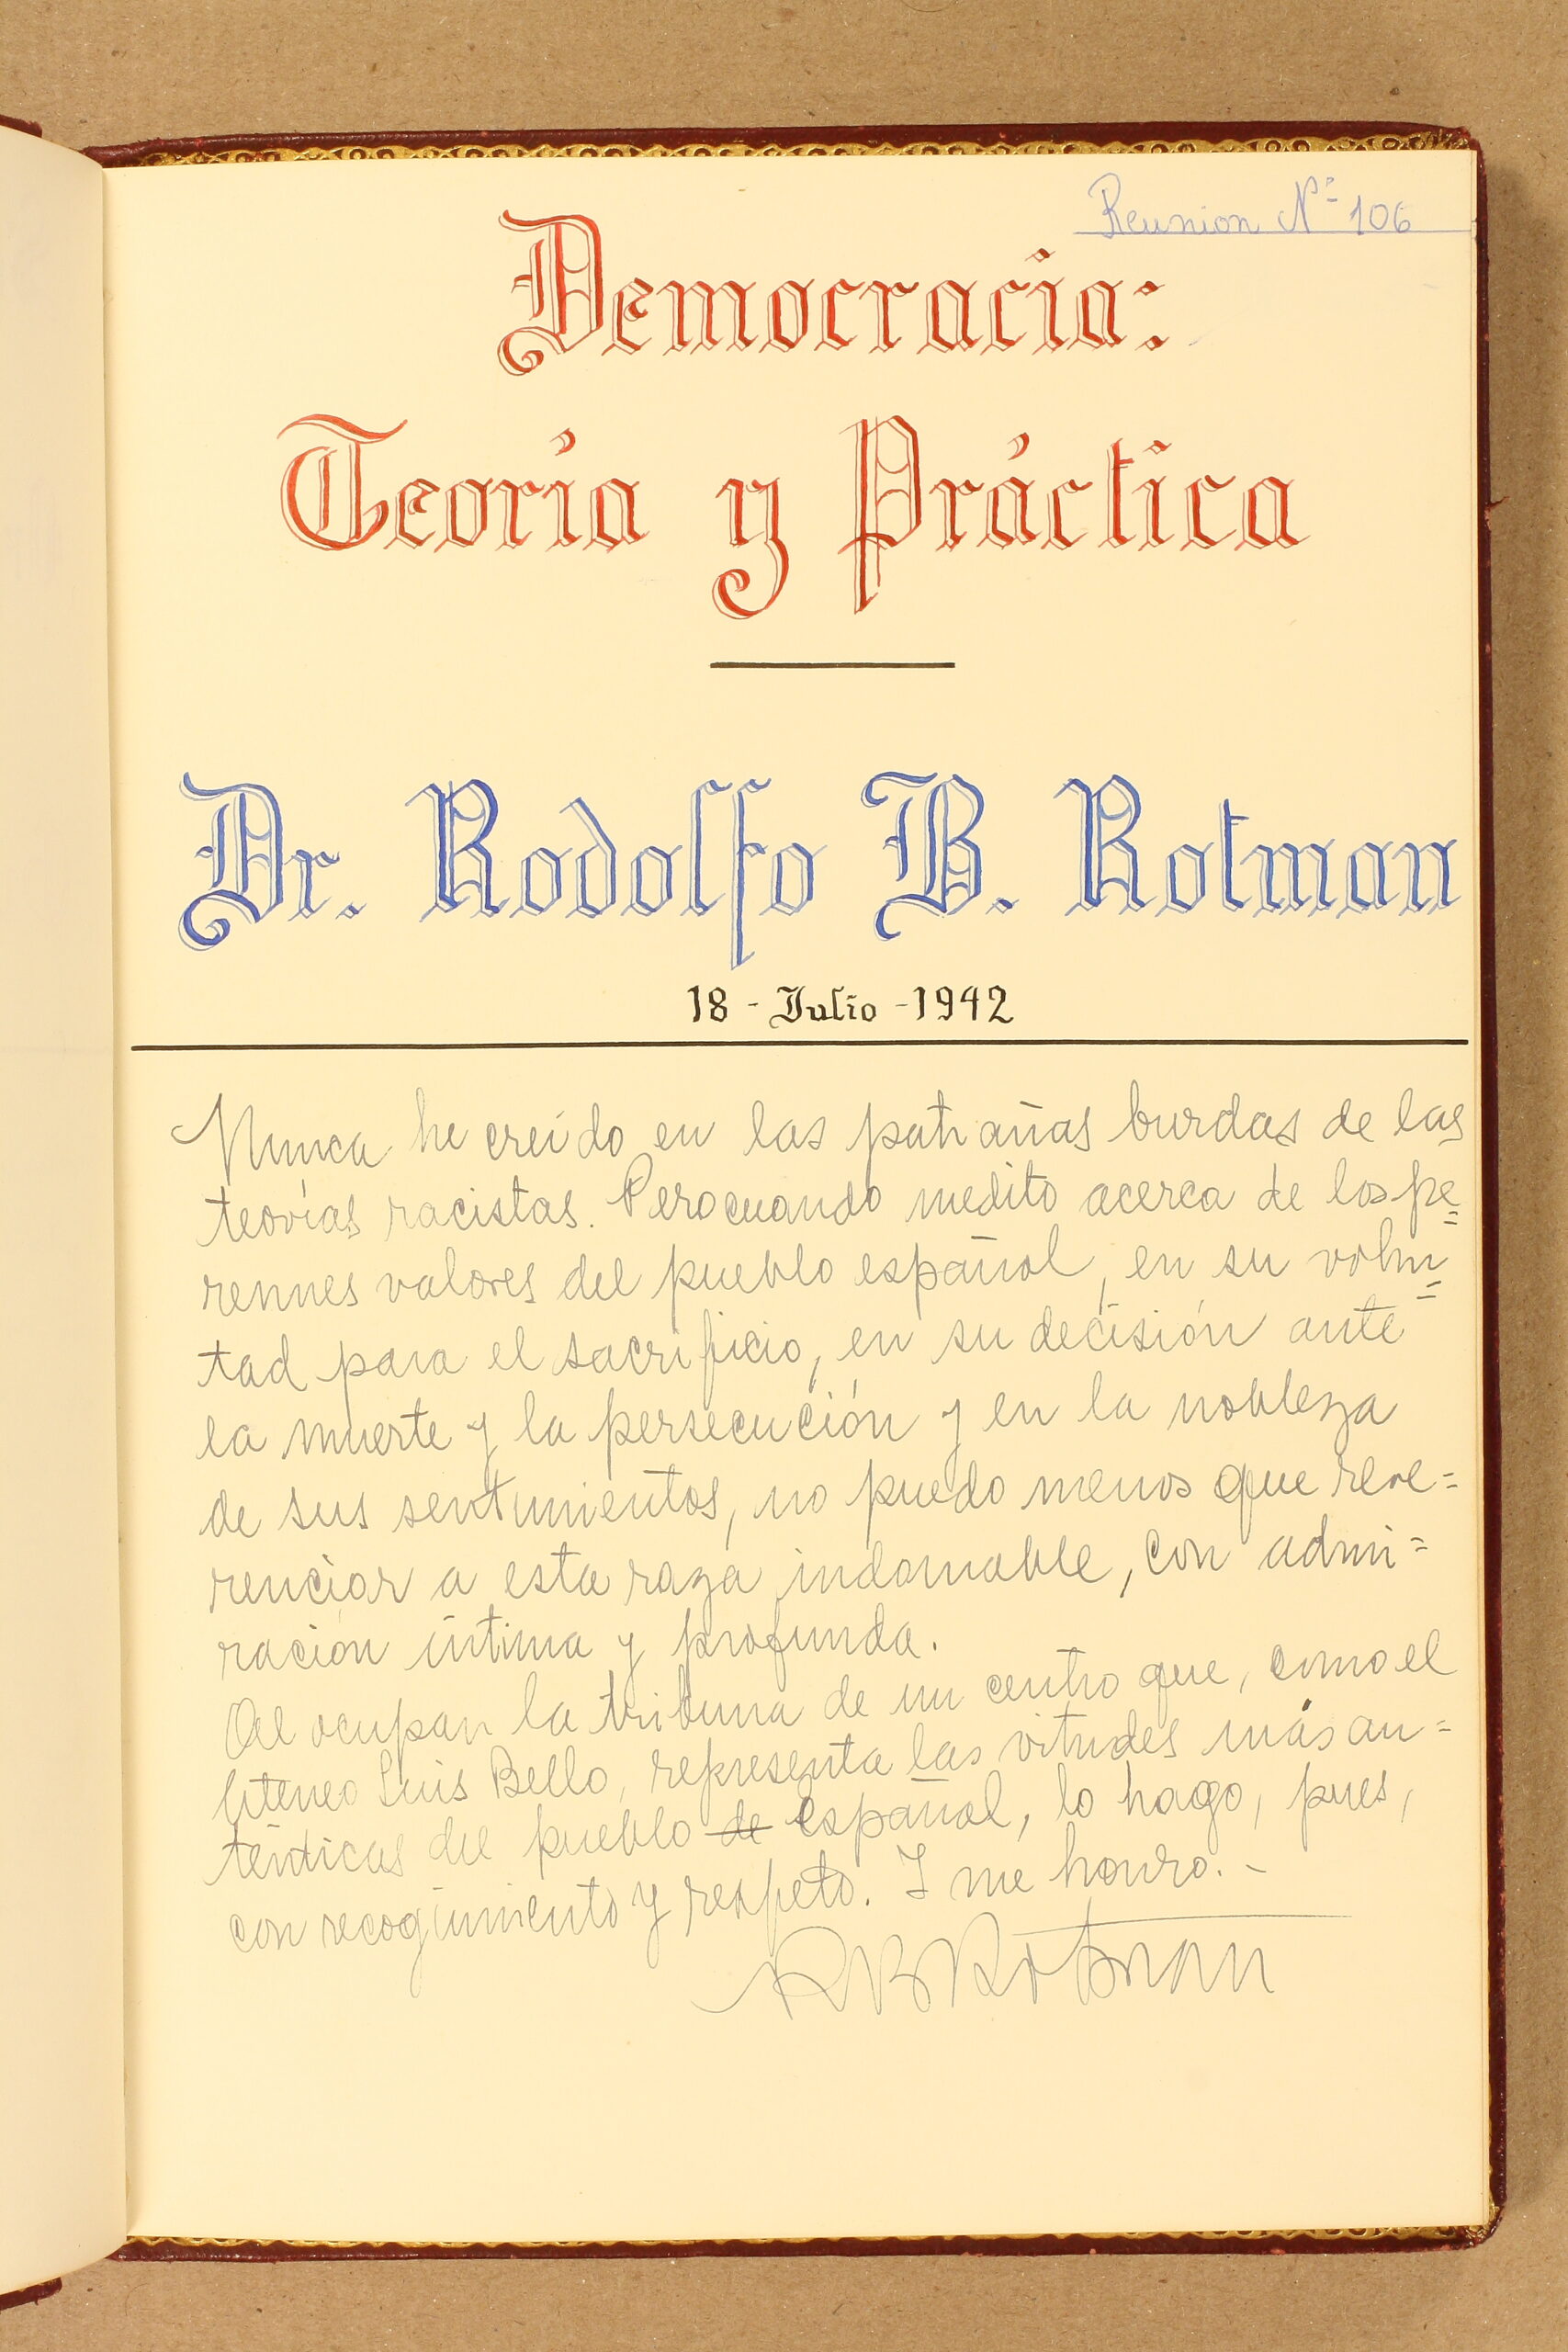 Reunion Nº 106
Democracia:
Teoría y Práctica
Dr. Rodolfo B. Rotman
18 - Julio - 1942
Nunca he creído en las patrañas burdas de las
teorías racistas. Pero cuando medito acerca de los pe=
rennes valores del pueblo español, en su volun=
tad para el sacrificio, en su decisión ante
la muerte y la persecución y en la nobleza
de sus sentimientos, no puedo menos que reve=
renciar a esta raza indomable, con admi=
ración íntima y profunda.
Al ocupar la tribuna de un centro que, como el
Ateneo Luis Bello, representa las vitudes más au=
ténticas del pueblo de español, lo hago, pues,
con recogimiento y respeto. I me honro.-
RBRotman